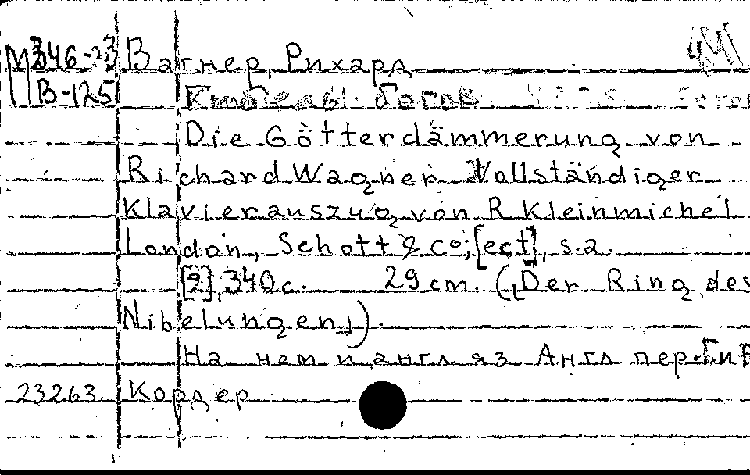 М346-23 Вагнер, Рихард
В-125 Гибель богов
Die Götterdämmerung von
Richard Wagner Vollständiger
Klavierauszug von R. Kleinmichel
London, Schott & Co; [ect], s.a.
[2], 340 с. 29 cm. („Der Ring des
Nibelungen„).
На нем и англ яз Англ пер. Г и Ф
23263 Кордер